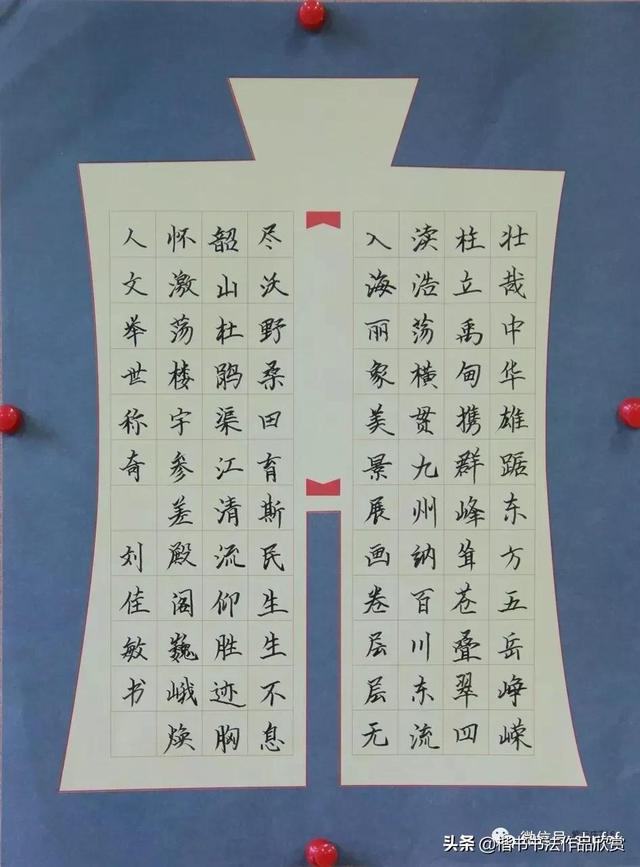 壮哉中华雄踞东方五岳峥嵘
柱立禹甸携群峰耸苍叠翠四
渎浩荡横贯九州纳百川东流
入海丽象美景展画卷层层无
尽沃野桑田育斯民生生不息
韶山杜鹃渠江清流仰胜迹胸
怀激荡楼宇参差殿阁巍峨焕
人文举世称奇 刘佳敏书
头条 @楷书书法作品欣赏